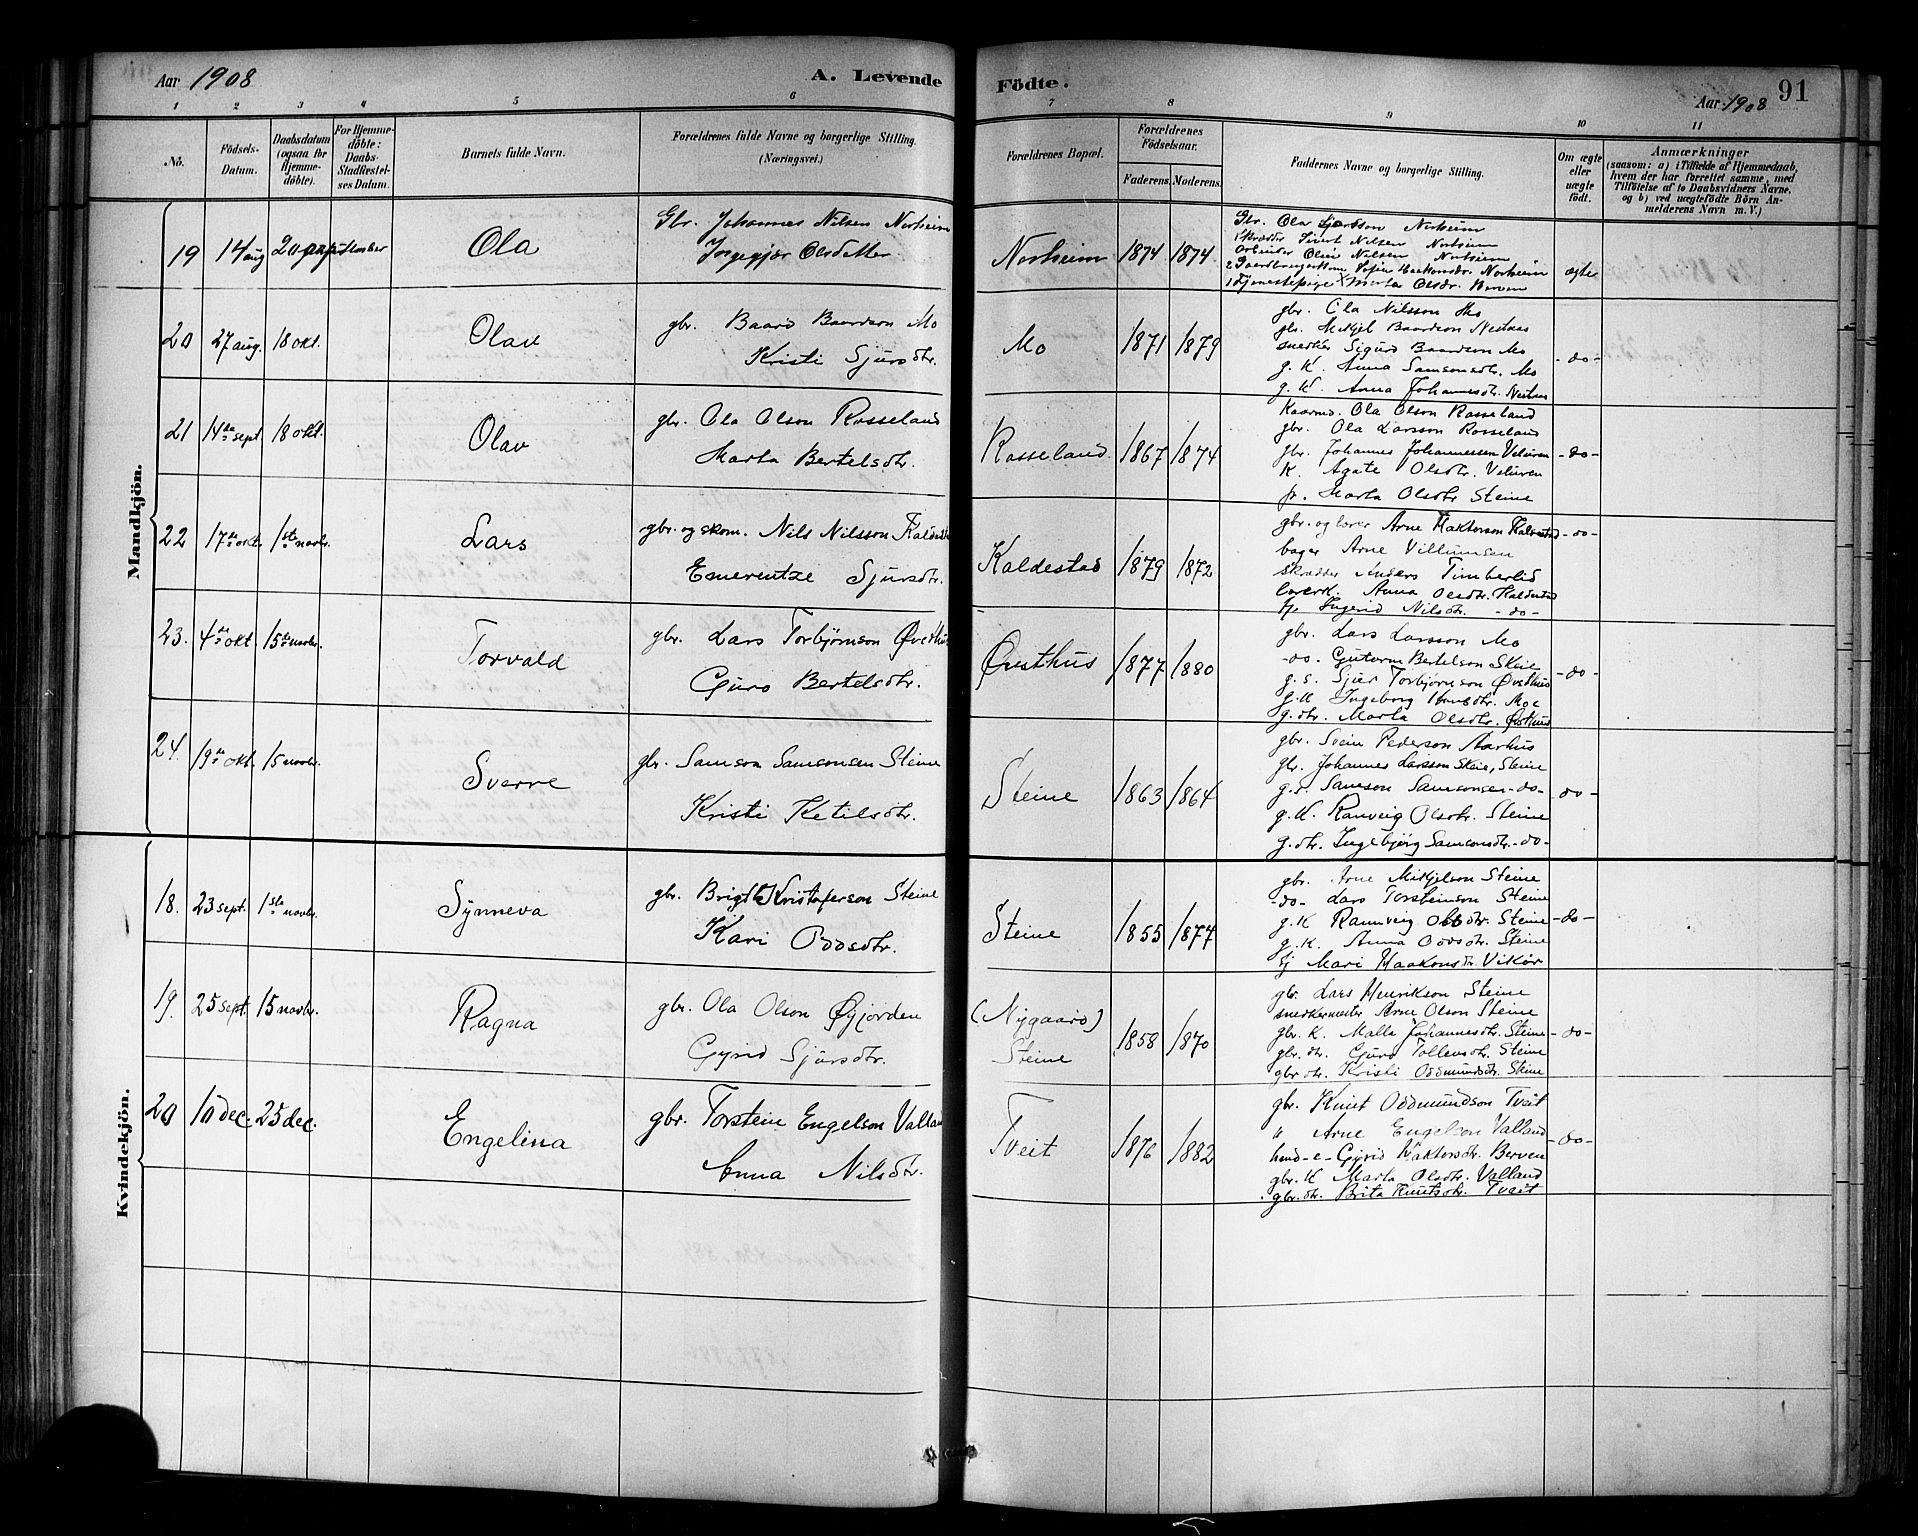 Aar 1908
A. Levende Födte.
91
Aar 1908
1 2 3 4 5 6 7 8 9 10 11
Nö.
Födsels-Datum.
Daabsdatum (ogsaa for Hjemme-döbte).
For Hjemme-döbte: Daabs-Stadfæstel-ses Datum.
Barnets fulde Navn.
Forældrenes fulde Navne og borgerlige Stilling. (Næringsvei.)
Forældrenes Bopæl.
Forældrenes Födselsaar.
Faderens. Moderens.
Faddernes Navne og borgerlige Stilling.
Om ægte eller uægte födt.
Anmærkninger (saasom: a) i Tilfælde af Hjemmedaab, hvem der har forrettet samme, med Tilföielse af to Daabsvidners Navne. og b) ved uægtefödte Börn An-melderens Navn m. V.)
Mandkjön.
19 14 aug 20 september Ola
Gbr. Johannes Nilsen Norheim
Ingegjær Olsdatter
Norheim 1874 1874
Gbr. Ola Norheim
Skrædder Sivert Nilsen Norheim
Arbeider Olein Nilsen Norheim
Sofie Haakonsdr. Norheim
Tjenestepige Marta Olsdr. Berven
ægte
20 27 aug. 18 okt. Olav
gbr. Baard Baardson Mo
Kristi Sjursdtr.
Mo 1871 1879
gbr. Ola Nilsson Mo
gbr. Mikjel Baardson Nestaas
snedker Sigurd Baardson Mo
g. K. Anna Samsonsdtr. Mo
g. K. Anna Johannesdtr. Nestaas
-do-
21 14de sept. 18 okt. Olav
gbr. Ola Olson Rosseland
Marta Bertelsdtr.
Rosseland. 1867 1874
Kaarmd. Ola Olson Rosseland
gbr. Ola Larsson Rosseland
gbr. Johannes Johannessen Veluren
K. Agate Olsdtr. Veluren
p. Marta Olsdtr Steine
-do-
22 17de okt. 1ste novbr. Lars
gbr. og skom. Nils Nilsson Kaldestad
Esmerentze Sjursdtr.
Kaldestad 1879 1872
gbr. og lærer Arne Haktorson Kaldestad
bager Arne Villumsen
skrædder Anders Timberlid
lærerk. Anna Olsdtr. Kaldestad
Ingerid Nilsdtr. -do-
-do-
23. 4de okt 15de novbr. Torvald
gbr. Lars Torbjörnson Øvsthus
Guro Bertelsdtr.
Øvsthus 1877 1880
gbr. Lars Larsson Mo
-do. Guttorm Bertelson Skeie
g. s. Sjur Torbjörnson Øvsthus
g. K Ingeborg Hansdtr. Moe
g. dtr. Marta Olsdtr. Øvsthus
-do-
24. 19de okt. 15 novbr. Sverre
gbr. Samson Samsonsen Steine
Kristi Ketilsdtr.
Steine 1863 1864
gbr. Svein Pederson Aarhus
gbr. Johannes Larsson Skeie, Steine
g. s. Samson Samsonsen -do-
g. K. Ranveig Olsdtr. Steine
g. dtr. Ingebjörg Samsonsdtr. -do-
-do-
Kvindekjön.
18. 23 sept. 1ste novbr. Synneva
gbr. Brigt Kristoferson Steine
Kari Oddsdtr.
Steine 1855 1877
gbr. Arne Mikjelson Steine
-do- Lars Torsteinson Steine
g. K Rannveig Olsdtr. Steine
g. K. Anna Oddsdtr. Steine
Mari Haakonsdtr Vikør
-do-
19. 25 sept. 15 novbr. Ragna
gbr. Ola Olson Øyjorden
Gyrid Sjursdtr.
(Nygaard)
Steine 1858 1870
gbr. Lars Henrikson Steine
snedkermester Arne Olson Steine
gbr. K. Malla Johannesdtr. Steine
gbr. dtr. Guro Tollevsdtr. Steine
gbr dtr. Kristi Oddmundsdtr. Steine
-do-
20 10 dec. 25 dec. Engelina
gbr. Torstein Engelson Valland
Anna Nilsdtr.
Tveit 1876 1882
gbr. Knut Oddmundson Tveit
" Arne Engelson Valland
hand-e- Gyrid Haktorsdtr. Berven
gbr. K Marta Olsdtr. Valland
gbr. dtr. Brita Knutsdtr. Tveit
-do-